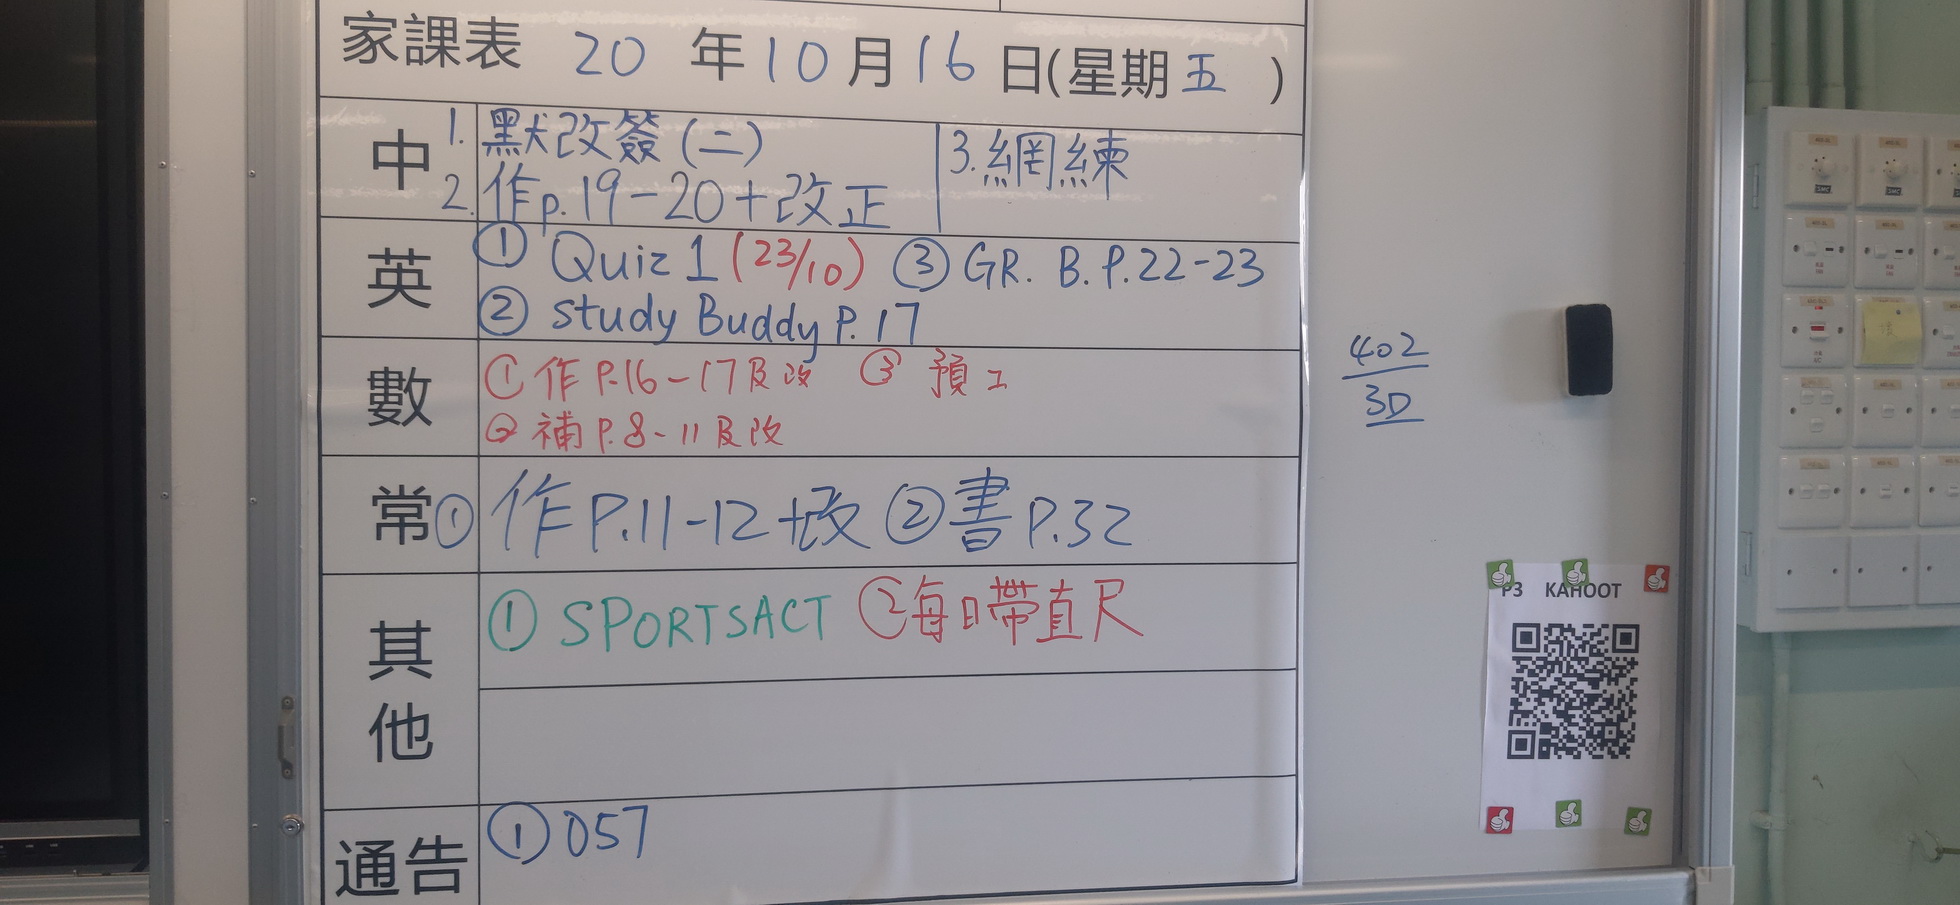 家課表 20 年 10 月 16 日(星期五)
中 1. 默改簽(二) 3. 網練
2. 作p.19-20+改正
英 ① Quiz 1 (23/10) ③ GR. B. P.22-23
② Study Buddy P.17
數 ① 作 P.16-17及改 ③ 預工
② 補 P.8-11及改
常 ① 作 P.11-12+改 ② 書 P.32
其他 ① SPORTSACT ② 每日帶直尺
通告 ① 057
402
3D
P3 KAHOOT